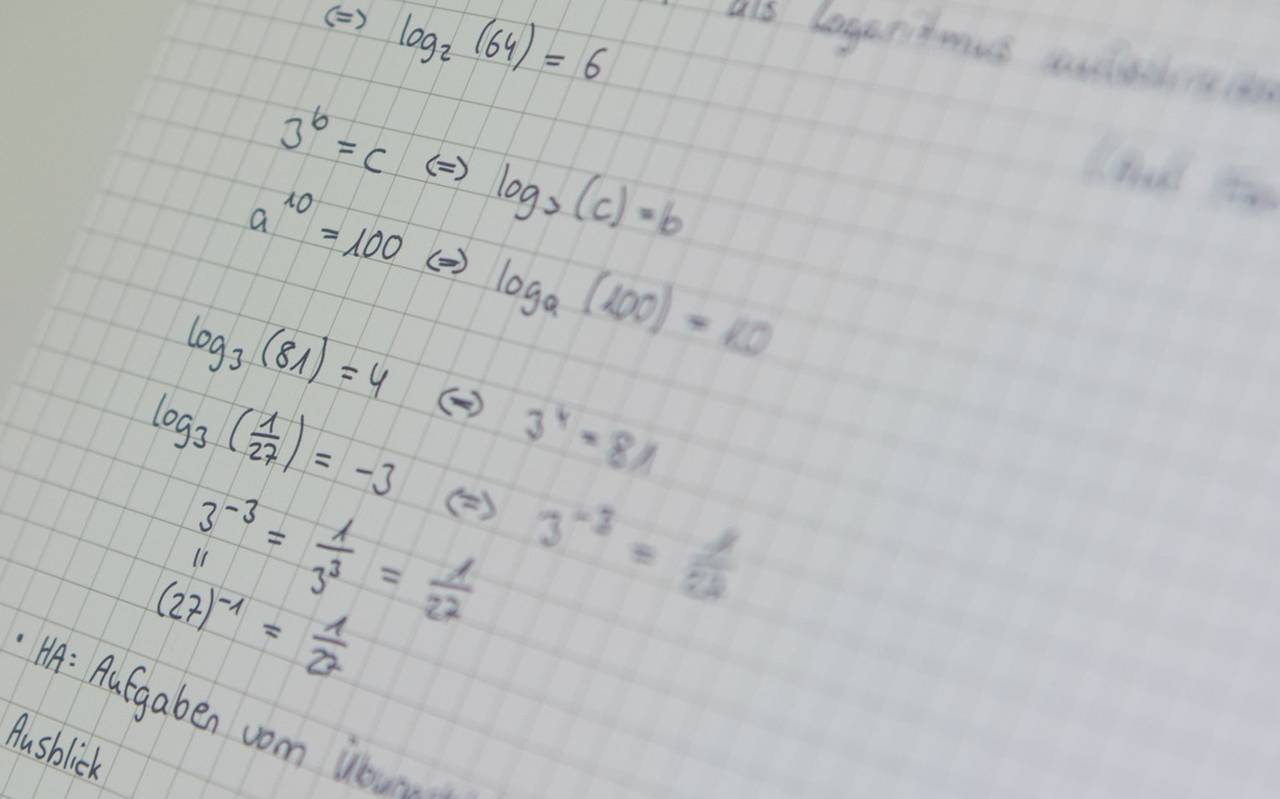 als Logarithmus
(=) log₂ (64) = 6
3ᵇ = c (=) log₃ (c) = b
a¹⁰ = 100 (=) logₐ (100) = 10
log₃ (81) = 4 (=) 3⁴ = 81
log₃ (1/27) = -3 (=) 3⁻³ = 1/27
3⁻³ = 1/3³ = 1/27
=
(27)⁻¹ = 1/27
• HA: Aufgaben vom
Ausblick